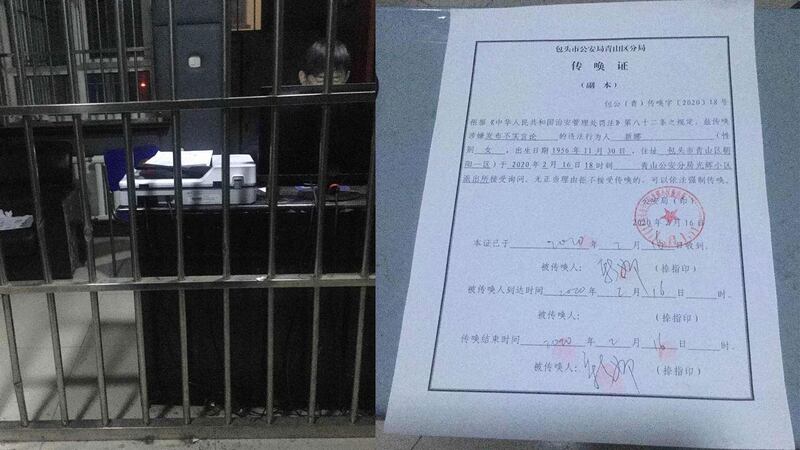 包头市公安局青山区分局
传唤证
（副本）
包公（青）传唤字〔2020〕18号
根据《中华人民共和国治安管理处罚法》第八十二条之规定，兹传唤
涉嫌发布不实言论 的违法行为人 新娜 （性
别 女 ，出生日期 1956年11月30日，住址 包头市青山区朝
阳一区）于2020年2月16日18时到 青山公安分局光辉小区
派出所接受询问。无正当理由拒不接受传唤的，可以依法强制传唤。
公安局（印）
2020年2月16日
本证已于 2020 年 2 月 日收到。
被传唤人： （捺指印）
被传唤人到达时间 2020 年 2 月 16 日 时.
被传唤人： （捺指印）
传唤结束时间 2020 年 2 月 16 日 时.
被传唤人： （捺指印）